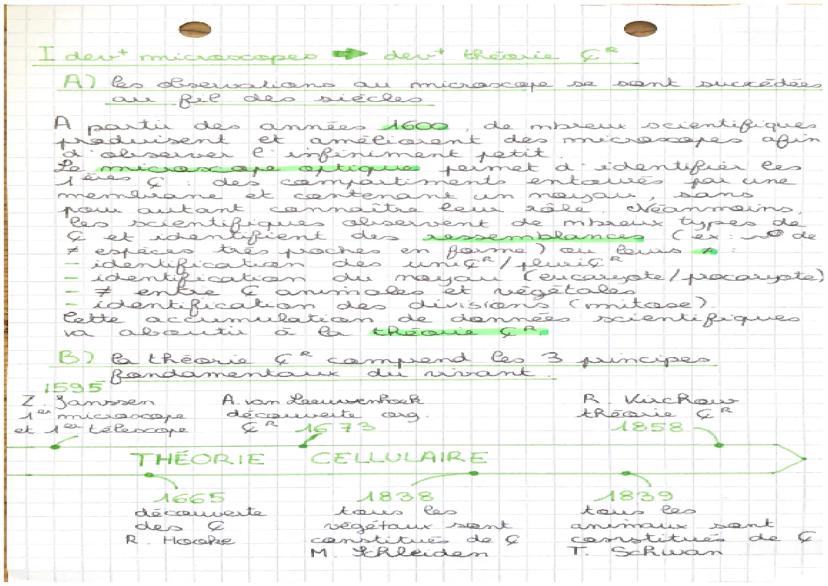 I devt microscopes ➡ devt théorie ÇR
A) les observations au microscope se sont succédées
au fil des siècles
A partir des années 1600, de nbreux scientifiques
produisent et améliorent des microscopes afin
d'observer l'infiniment petit.
Le microscope optique permet d'identifier les
1ères Ç : des compartiments entourés par une
membrane et contenant un noyau, sans
pour autant connaître leur rôle. Néanmoins,
les scientifiques observent de nbreux types de
Ç et identifient des ressemblances (ex : de
≠ espèces très proches en forme) ou leurs ≠ :
- identification des uniÇR/pluriÇR
- identification du noyau (eucaryote/procaryote)
- ≠ entre Ç animales et végétales
- identification des divisions (mitose)
Cette accumulation de données scientifiques
va aboutir à la théorie ÇR.
B) la théorie ÇR comprend les 3 principes
fondamentaux du vivant.
1595
Z. Janssen
1er microscope
et 1er télescope
A. van Leeuwenhoek
découverte org.
ÇR 1673
R. Virchow
théorie ÇR
1858
THÉORIE CELLULAIRE
1665
découverte
des Ç
R. Hooke
1838
tous les
végétaux sont
constitués de Ç
M. Schleiden
1839
tous les
animaux sont
constitués de Ç
T. Schwan